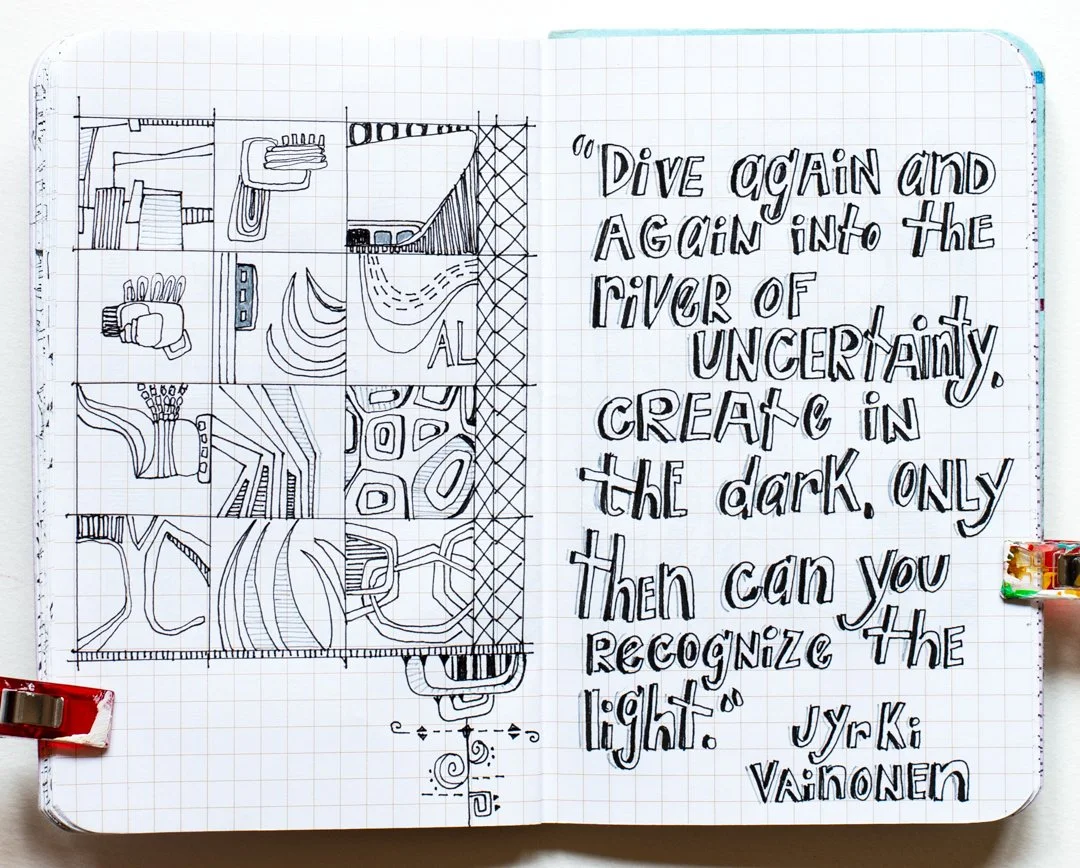 AL
"Dive again and
again into the
river of
uncertainty.
Create in
the dark, only
then can you
recognize the
light."
Jyrki
Vainonen